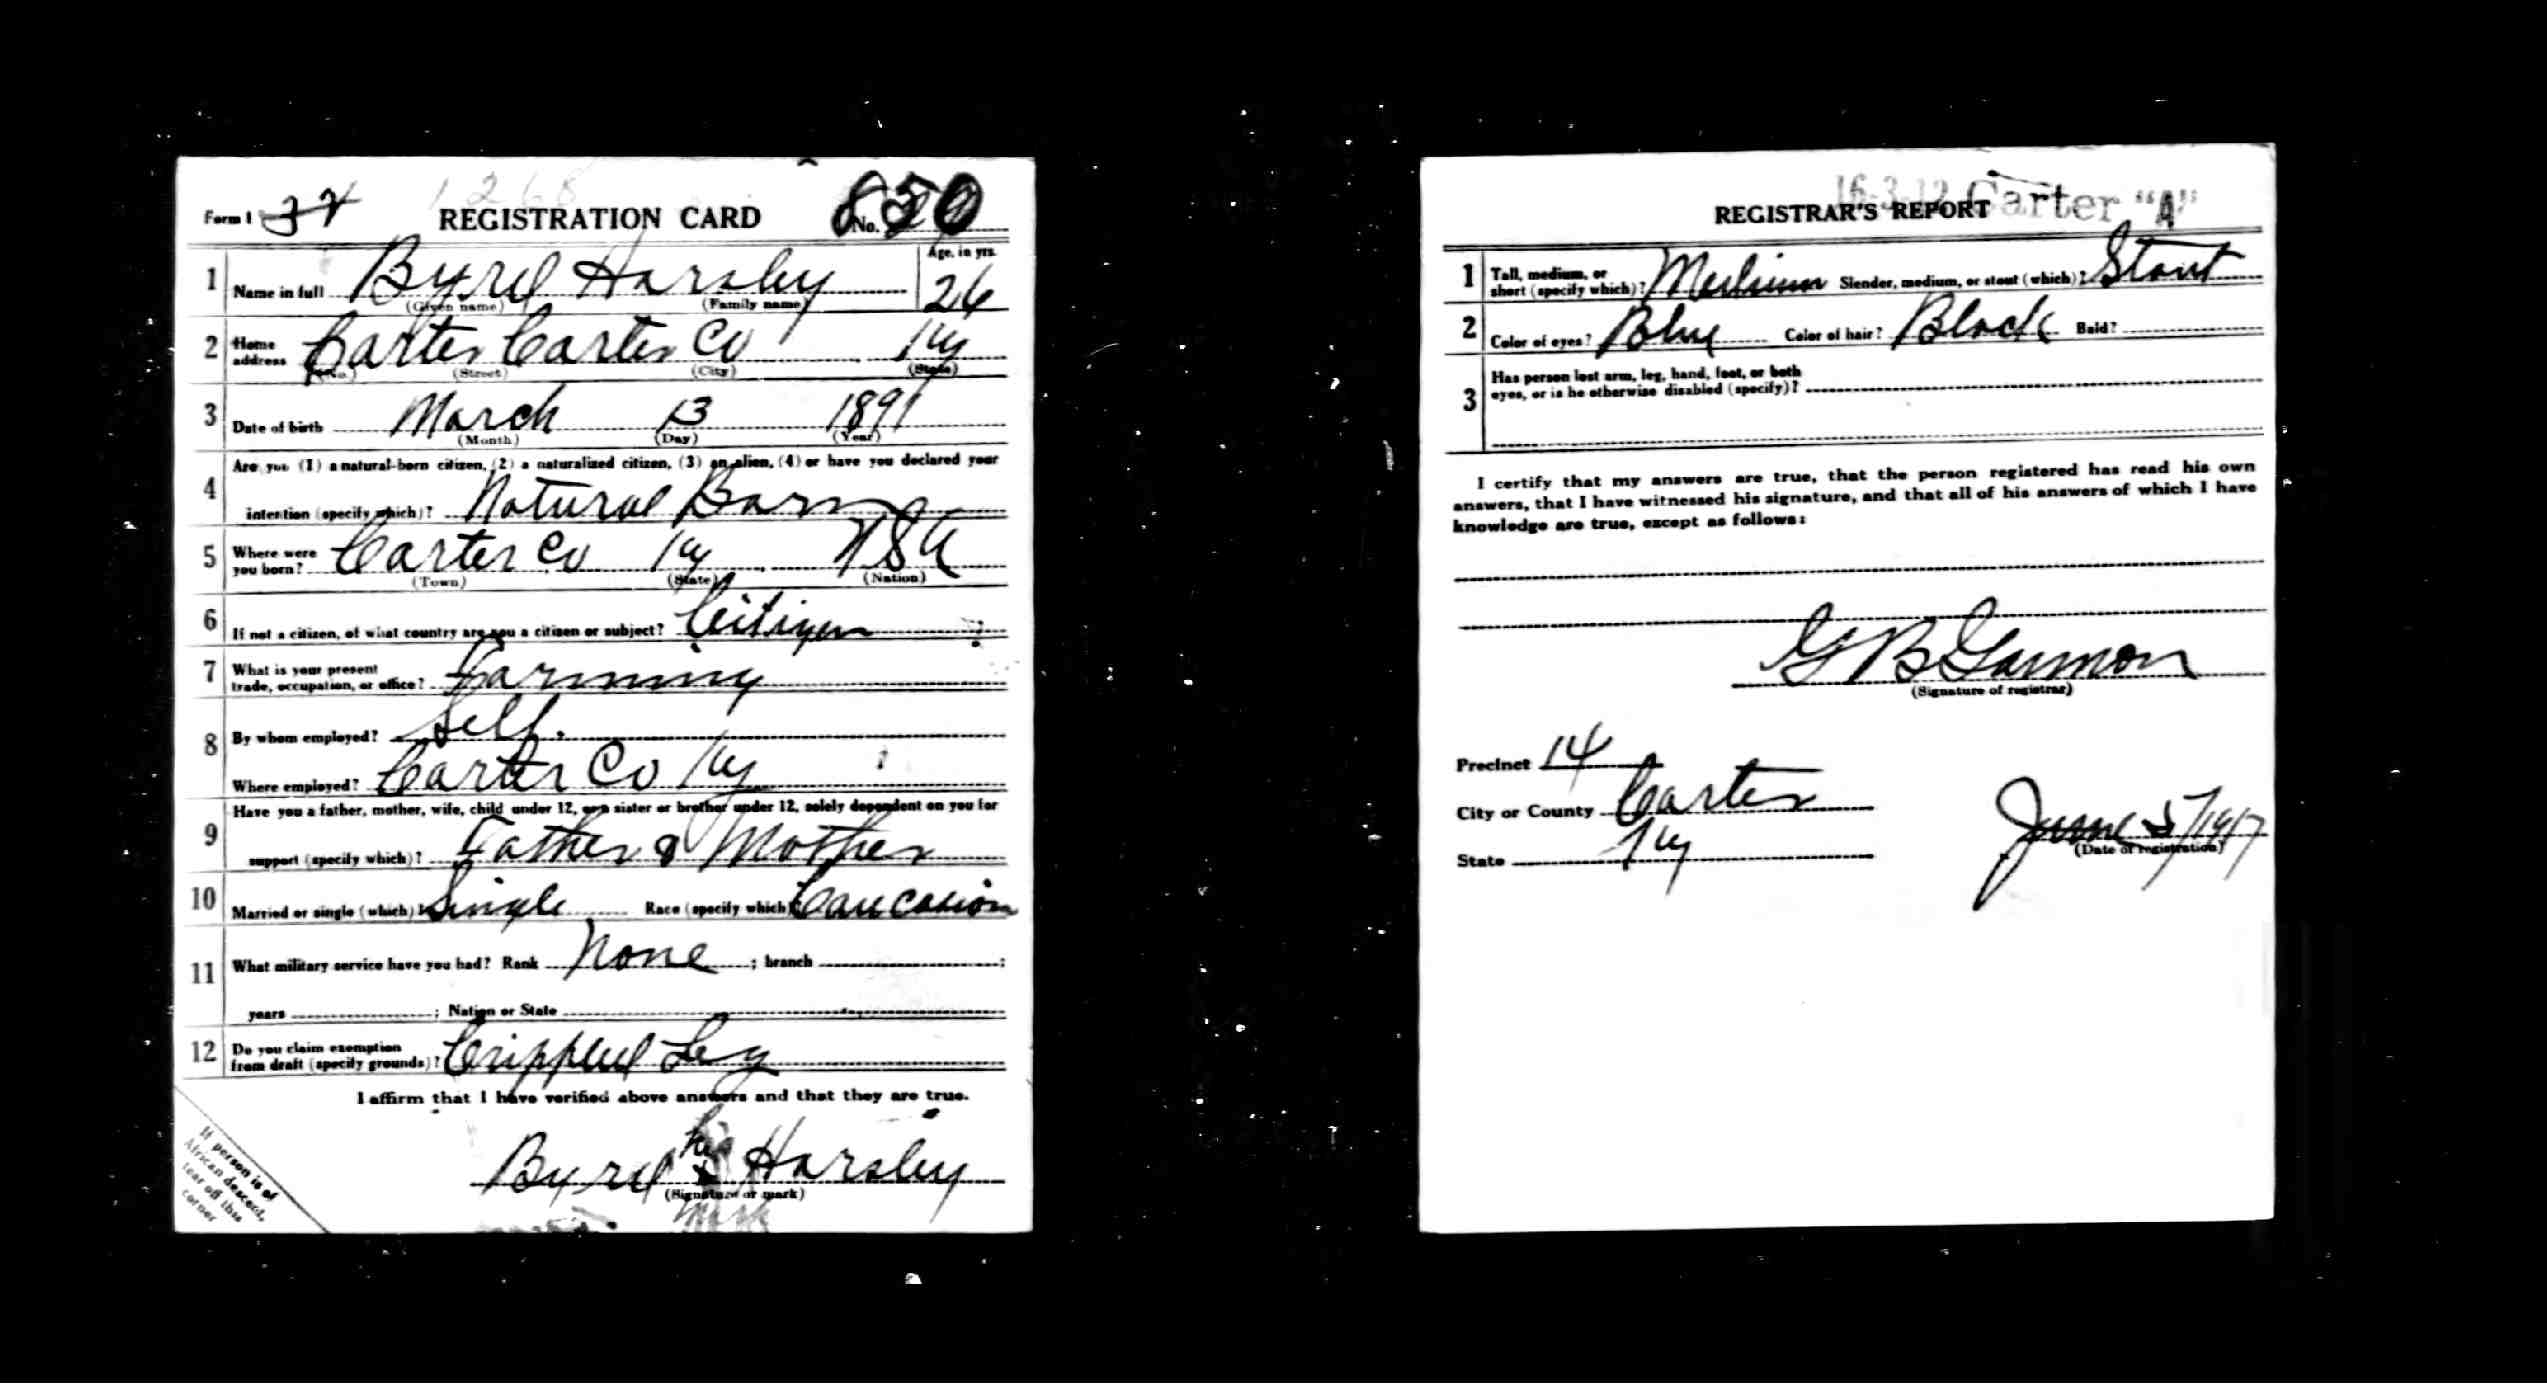 Form 1 37 REGISTRATION CARD No. 850
1268
1 Name in full Byrd Harsley Age, in yrs. 26
(Given name) (Family name)
2 Home address Carter Carter Co Ky
(No.) (Street) (City) (State)
3 Date of birth March 13 1891
(Month) (Day) (Year)
4 Are you (1) a natural-born citizen, (2) a naturalized citizen, (3) an alien, (4) or have you declared your
intention (specify which)? Natural Born
5 Where were you born? Carter Co Ky USA
(Town) (State) (Nation)
6 If not a citizen, of what country are you a citizen or subject? Citizen
7 What is your present
trade, occupation, or office? Farming
8 By whom employed? Self.
Where employed? Carter Co Ky
9 Have you a father, mother, wife, child under 12, or a sister or brother under 12, solely dependent on you for
support (specify which)? Father & Mother
10 Married or single (which)? Single Race (specify which)? Caucasion
11 What military service have you had? Rank None ; branch ;
years ; Nation or State
12 Do you claim exemption
from draft (specify grounds)? Crippled Leg
I affirm that I have verified above answers and that they are true.
his
Byrd x Harsley
(Signature or mark)
mark
If person is of
African descent,
tear off this
corner
16-3-12 Carter "A"
REGISTRAR'S REPORT
1 Tall, medium, or
short (specify which)? Medium Slender, medium, or stout (which)? Stout
2 Color of eyes? Blue Color of hair? Black Bald?
3 Has person lost arm, leg, hand, foot, or both
eyes, or is he otherwise disabled (specify)?
I certify that my answers are true, that the person registered has read his own
answers, that I have witnessed his signature, and that all of his answers of which I have
knowledge are true, except as follows:
G B Garmon
(Signature of registrar)
Precinct 14
City or County Carter
State Ky
June 5/1917
(Date of registration)